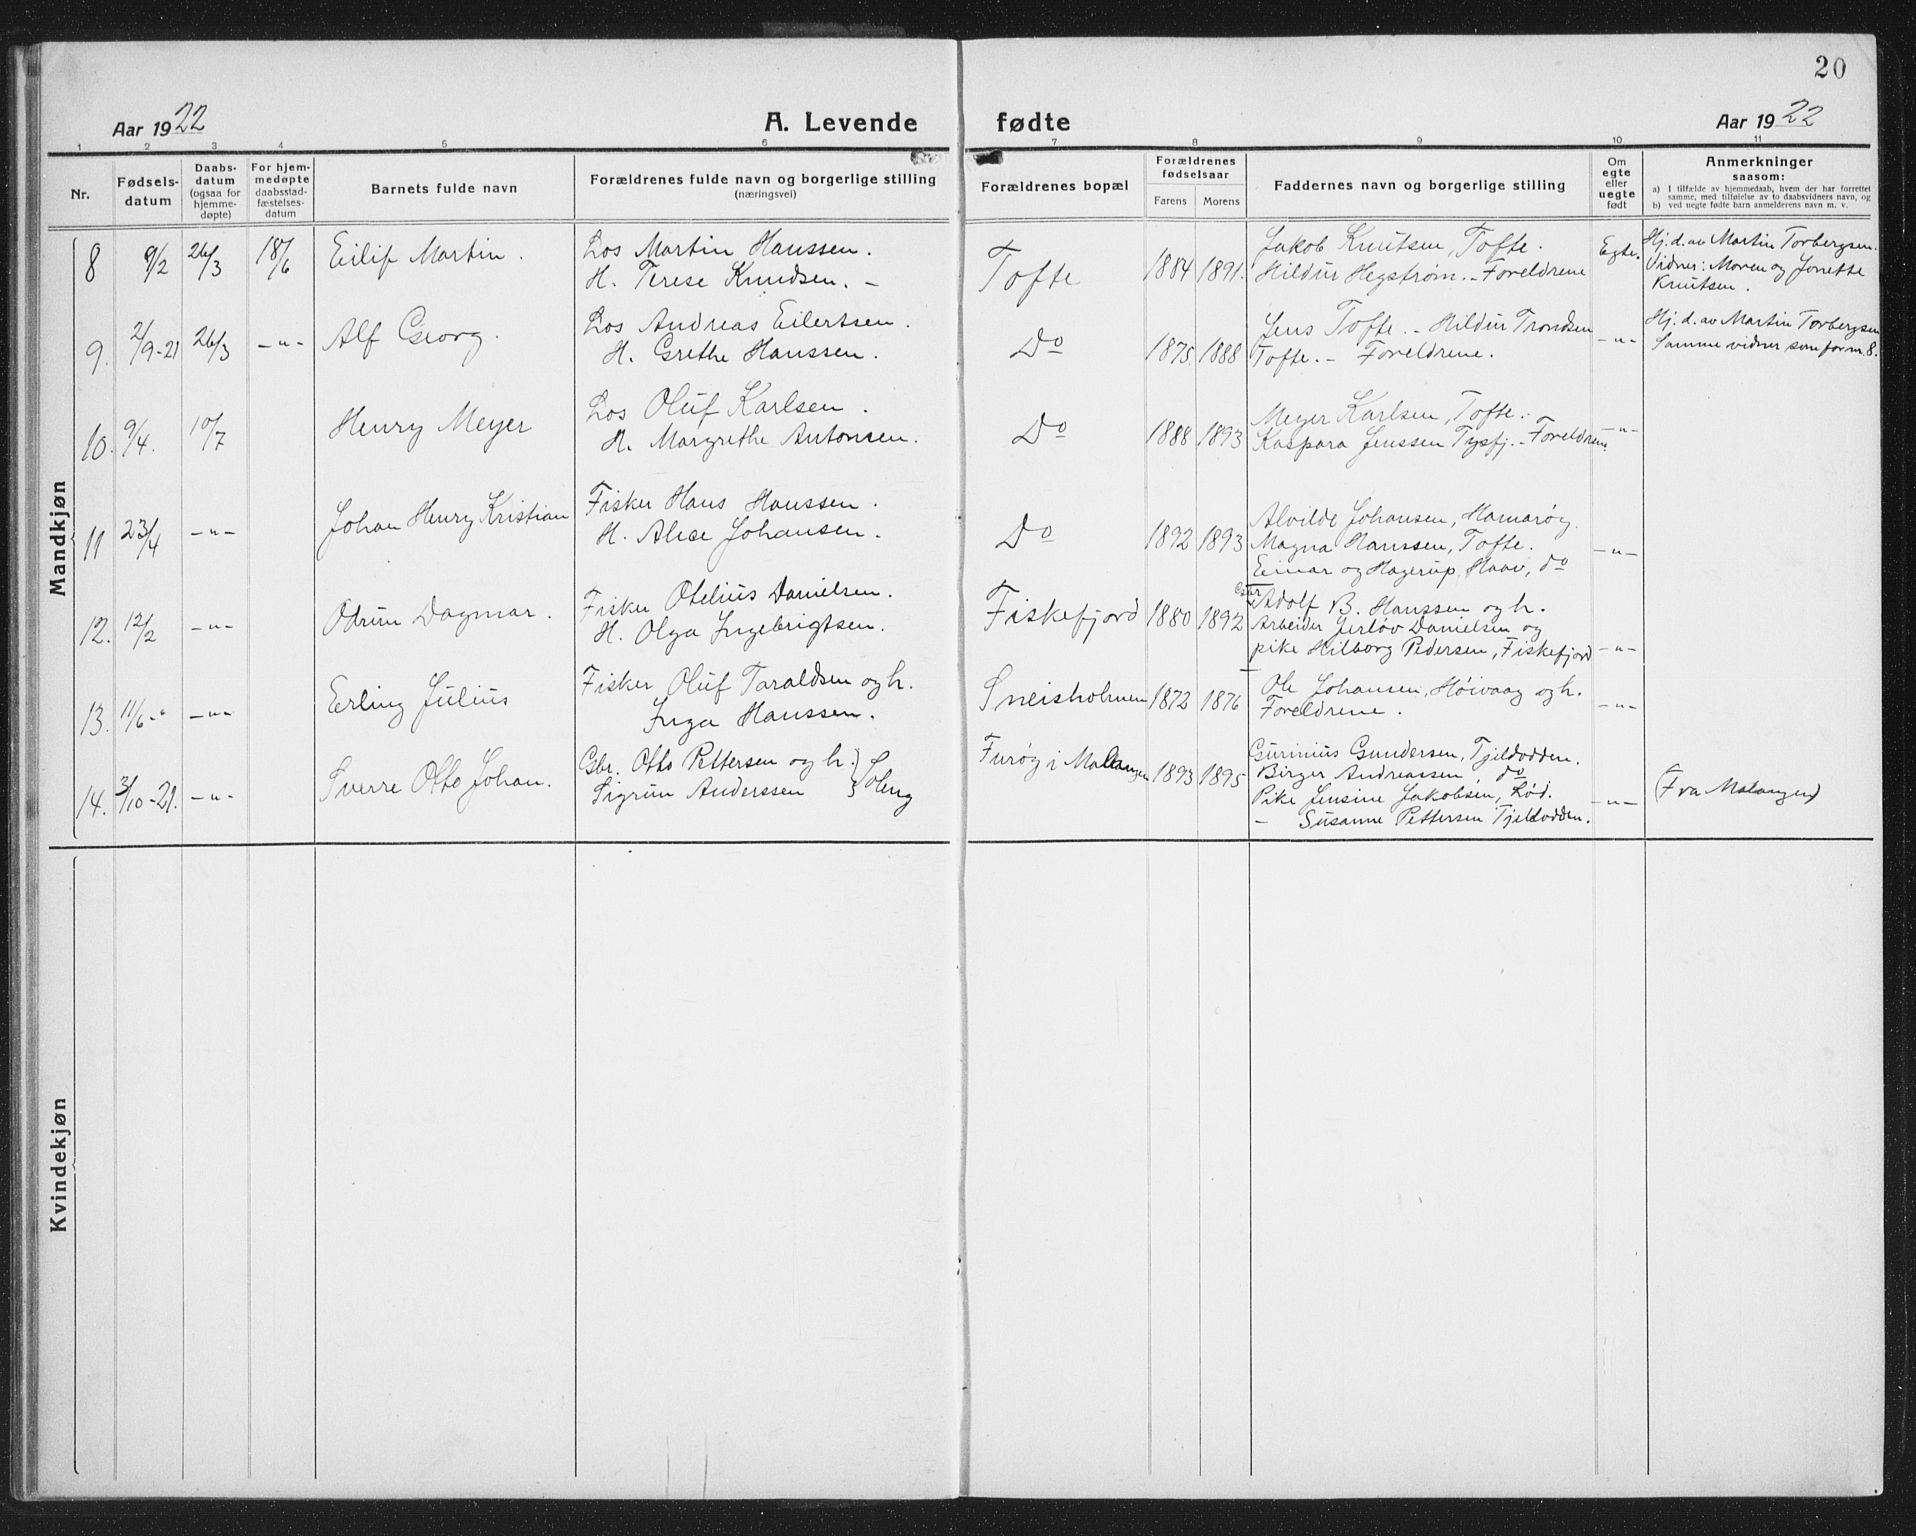 20
Aar 1922
A. Levende fødte
Aar 1922
1 2 3 4 5 6 7 8 9 10 11
Nr.
Fødsels-
datum
Daabs-
datum
(ogsaa for
hjemme-
døpte)
For hjem-
medøpte
daabsstad-
fæstelses-
datum
Barnets fulde navn
Forældrenes fulde navn og borgerlige stilling
(næringsvei)
Forældrenes bopæl
Forældrenes
fødselsaar
Farens
Morens
Faddernes navn og borgerlige stilling
Om
egte
eller
uegte
født
Anmerkninger
saasom:
a) I tilfælde av hjemmedaab, hvem der har forrettet
samme, med tilføielse av to daabsvidners navn, og
b) ved uegte fødte barn anmelderens navn m. v.
Mandkjøn
8 9/2 26/3 18/6 Eilif Martin.
Los Martin Hanssen.
H. Terese Knudsen. -
Tofte 1884 1891.
Jakob Knutsen, Tofte.
Hildur Hegstrøm. - Foreldrene
Egte.
Hj. d. av Martin Torbergsen.
Vidner: Moren og Jonette
Knutsen.
9. 2/9-21 26/3 -"- Alf Georg.
Los Andreas Eilertsen.
H. Grethe Hanssen.
Do 1875. 1888
Jens Tofte. - Hildur Trondsen
Tofte. - Foreldrene.
-"-
Hj. d. av Martin Torbergsen
Samme vidner som for nr. 8.
10. 9/4. 10/7 Henry Meyer
Los Oluf Karlsen.
H. Margrethe Antonsen.
Do 1888 1893
Meyer Karlsen, Tofte.
Kaspara Jenssen Tysfj. - Foreldrene
-"-
11 23/4 -"- Johan Henry Kristian
Fisker Hans Hanssen.
H. Alice Johansen.
Do 1892 1893
Alvilde Johansen, Hamarøy.
Magna Hanssen, Tofte.
Einar og Hagerup Haav, do
-"-
12. 12/2 -"- Odrun Dagmar.
Fisker Otelius Danielsen.
H. Olga Ingebrigtsen.
Fiskefjord 1880 1892
Gbr. Adolf B. Hanssen og h.
Arbeider Jerløv Danielsen og
pike Hilborg Pedersen, Fiskefjord
-"-
13. 11/6 -"- Erling Julius
Fisker Oluf Taraldsen og h.
Inga Hanssen.
Sneisholmen 1872 1876
Ole Johansen, Høivaag og h.
Foreldrene.
-"-
14. 3/10-21. -"- Sverre Otto Johan.
Gbr. Otto Pettersen og h.
Sigrun Anderssen
Furøy i Malangen 1893 1895
Gurinius Gundersen, Tjeldodden.
Birger Andreassen, do
Pike Jensine Jakobsen, Rød.
- Susanne Pettersen Tjeldodden.
-"-
(Fra Malangen)
Kvindekjøn